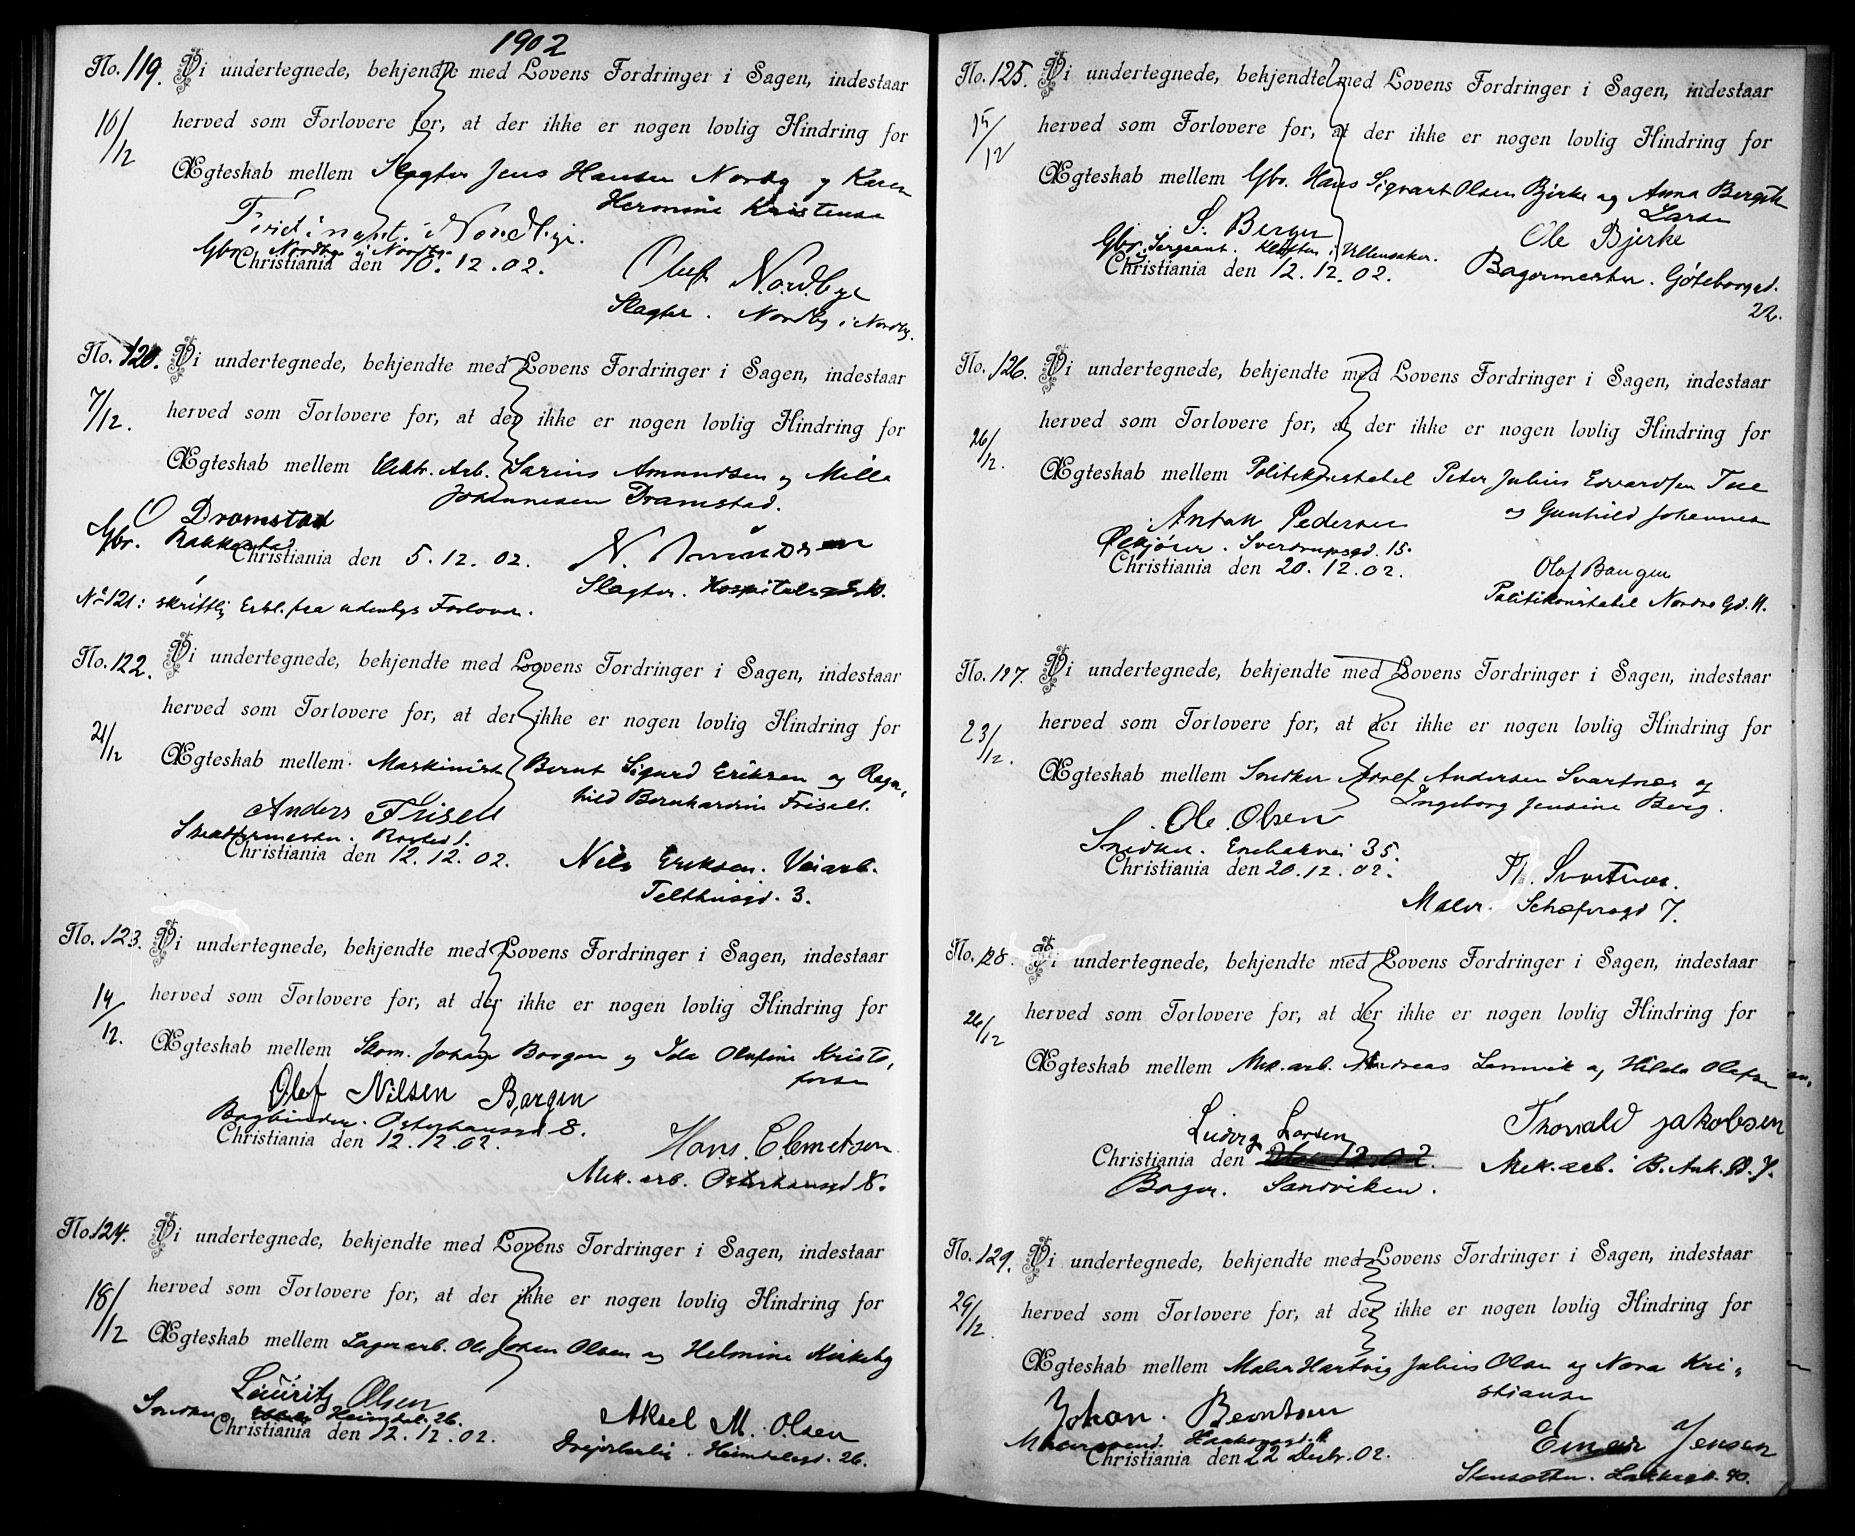 1902
No. 119. Vi undertegnede, bekjendte med Lovens Fordringer i Sagen, indestaar
10/12 herved som Forlovere for, at der ikke er nogen lovlig Hindring for
Ægteskab mellem Slagter Jens Hansen Nordby og Karen
Hermine Kristensen
Nordbye
Gbr. Nordby i Nordby
Christiania den 10.12.02.
Oluf Nordbye
Slagter. Nordby i Nordby.
No. 120. Vi undertegnede, bekjendte med Lovens Fordringer i Sagen, indestaar
7/12. herved som Forlovere for, at der ikke er nogen lovlig Hindring for
Ægteskab mellem Elektr. Arb. Sarius Amundsen og Milla
Johannesen Dramstad.
O Dramstad
Gbr. Rakkestad
Christiania den 5.12.02.
N. Amundsen
Slagter. Hospitalsgd. 10.
No 121: skriftlig Erkl. fra udenbys Forlover.
No. 122. Vi undertegnede, bekjendte med Lovens Fordringer i Sagen, indestaar
21/12 herved som Forlovere for, at der ikke er nogen lovlig Hindring for
Ægteskab mellem Maskinist Bernt Sigurd Eriksen og Ragn,
hild Bernhardine Frisell.
Anders Frisell
Christiania den 12.12.02.
Nils Eriksen. Veiarb.
Telthusgd. 3.
No. 123. Vi undertegnede, bekjendte med Lovens Fordringer i Sagen, indestaar
14/12. herved som Forlovere for, at der ikke er nogen lovlig Hindring for
Ægteskab mellem Skom. Johan Borgen og Ida Olufine Kristo,
forsen
Olef Nilsen Borgen
Bogbinder. Osterhausgd 8.
Christiania den 12.12.02.
Hans. Clemetsen
Mek. arb. Osterhausgd 8.
No. 124. Vi undertegnede, bekjendte med Lovens Fordringer i Sagen, indestaar
18/12 herved som Forlovere for, at der ikke er nogen lovlig Hindring for
Ægteskab mellem Lagerarb. Ole Johan Olsen og Helmine Kirkeby
Lauritz Olsen
Snedker. Heimdal. 26.
Christiania den 12.12.02.
Aksel M. Olsen
Heimdalsgd. 26.
No. 125. Vi undertegnede, bekjendte med Lovens Fordringer i Sagen, indestaar
15/12 herved som Forlovere for, at der ikke er nogen lovlig Hindring for
Ægteskab mellem Gbr. Hans Sigvart Olsen Bjerke og Anna Bergitte
Larsen
S. Berger
Gbr. Sergeant. Kløften i Ullensaker.
Christiania den 12.12.02.
Ole Bjerke
Bagermester. Göteborggd.
22.
No. 126. Vi undertegnede, bekjendte med Lovens Fordringer i Sagen, indestaar
26/12. herved som Forlovere for, at der ikke er nogen lovlig Hindring for
Ægteskab mellem Politikonstabel Peter Julius Edvardsen Tue
og Gunhild Johannesen
Anton Pedersen
Sverdrupsgd. 15.
Christiania den 20.12.02.
Olaf Bangen
Politikonstabel Nordre Gd. 11.
No. 127. Vi undertegnede, bekjendte med Lovens Fordringer i Sagen, indestaar
23/12. herved som Forlovere for, at der ikke er nogen lovlig Hindring for
Ægteskab mellem Snedker Adolf Andersen Svartnæs og
Ingeborg Jensine Berg.
Ole. Olsen
Snedker. Enebakvei 35.
Christiania den 20.12.02.
Th. Svartnæs.
Maler. Schæfersgd 7.
No. 128. Vi undertegnede, bekjendte med Lovens Fordringer i Sagen, indestaar
26/12 herved som Forlovere for, at der ikke er nogen lovlig Hindring for
Ægteskab mellem Mek. arb. Andreas Lamvik og Hilda Olafsen
Ludvig Larsen
Christiania den
Bager. Sandviken.
Thorvald Jakobsen
Mek. arb. B. Ank. Gd. 7.
No. 129. Vi undertegnede, bekjendte med Lovens Fordringer i Sagen, indestaar
29/12 herved som Forlovere for, at der ikke er nogen lovlig Hindring for
Ægteskab mellem Maler Hartvig Julius Olsen og Nora Kri-
stiansen
Johan. Berntsen
Christiania den 22 Decbr. 02.
Einar Jensen
Lakkegt. 40.